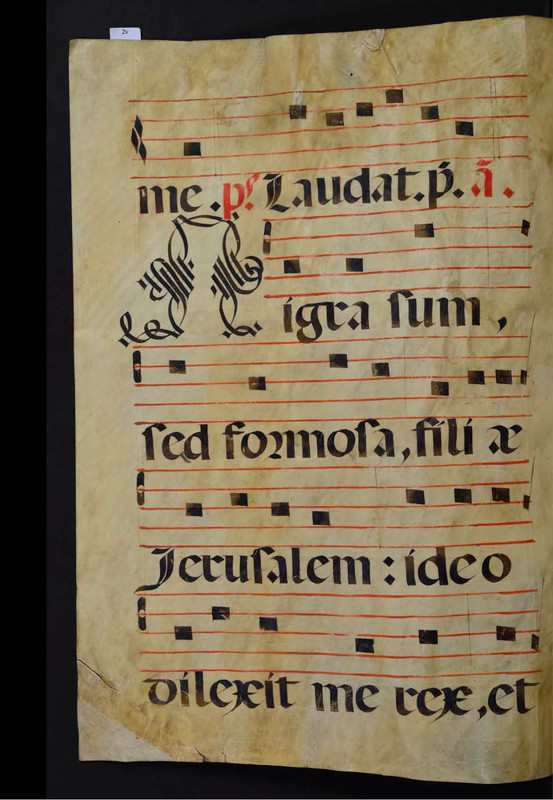 2v
me. ps. Laudat. p. ā.
Nigra sum,
sed formosa, fili æ
Jerusalem: ideo
dilexit me rex, et